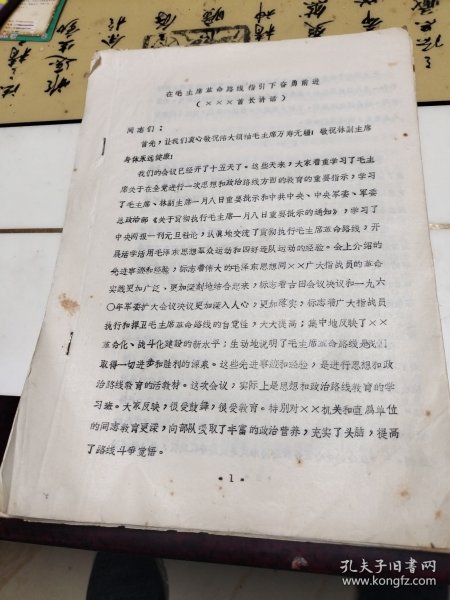 在毛主席革命路线指引下奋勇前进
（×××首长讲话）
同志们：
首先，让我们衷心敬祝伟大领袖毛主席万寿无疆！敬祝林副主席
身体永远健康！
我们的会议已经开了十五天了。这些天来，大家着重学习了毛主
席关于在全党进行一次思想和政治路线方面的教育的重要指示，学习了
毛主席、林副主席一月八日重要批示和中共中央、中央军委、军委
总政治部《关于贯彻执行毛主席一月八日重要批示的通知》，学习了
中央两报一刊元旦社论，认真地交流了贯彻执行毛主席革命路线，开
展活学活用毛泽东思想群众运动和四好连队运动的经验。会上介绍的
先进事迹和经验，标志着伟大的毛泽东思想同××广大指战员的革命
实践更加广泛、更加深刻地结合起来，标志着古田会议决议和一九六
〇年军委扩大会议决议更加深入人心，更加落实，标志着广大指战员
执行和捍卫毛主席革命路线的自觉性，大大提高；集中地反映了××
革命化、战斗化建设的新水平；生动地说明了毛主席革命路线是我们
取得一切进步和胜利的源泉。这些先进事迹和经验，是进行思想和政
治路线教育的活教材。这次会议，实际上是思想和政治路线教育的学
习班。大家反映，很受鼓舞，很受教育。特别对××机关和直属单位
的同志教育更深，向部队吸取了丰富的政治营养，充实了头脑，提高
了路线斗争觉悟。
·1·
孔夫子旧书网
www.kongfz.com